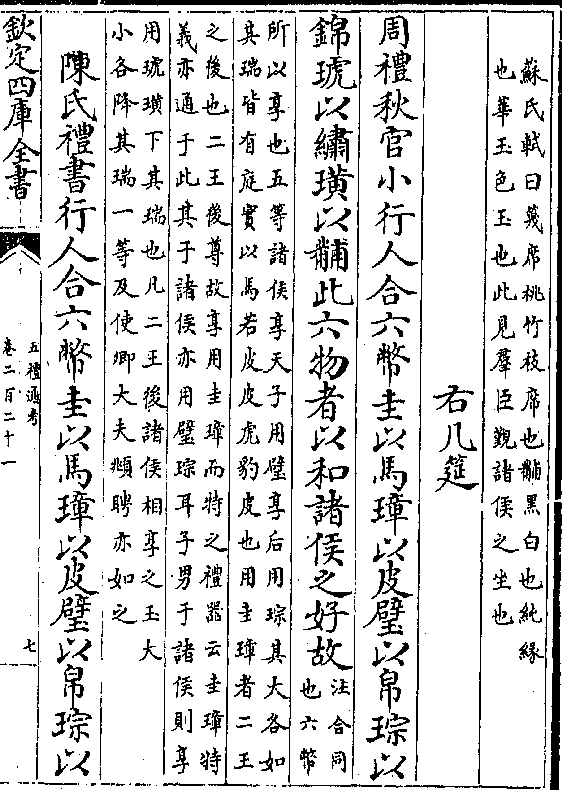 蘇氏軾曰篾席桃竹枝席也黼黑白也純緣
也華玉色玉也此見羣臣覲諸侯之坐也
右几筵
周禮秋官小行人合六幣圭以馬璋以皮璧以帛琮以
錦琥以繡璜以黼此六物者以和諸侯之好故
注合同
也六幣
所以享也五等諸侯享天子用璧享后用琮其大各如
其瑞皆有庭實以馬若皮皮虎豹皮也用圭璋者二王
之後也二王後尊故享用圭璋而特之禮器云圭璋特
義亦通于此其于諸侯亦用璧琮耳子男于諸侯則享
用琥璜下其瑞也凡二王後諸侯相享之玉大
小各降其瑞一等及使卿大夫頫聘亦如之
陳氏禮書行人合六幣圭以馬璋以皮璧以帛琮以
欽定四庫全書
五禮通考
卷二百二十一
七